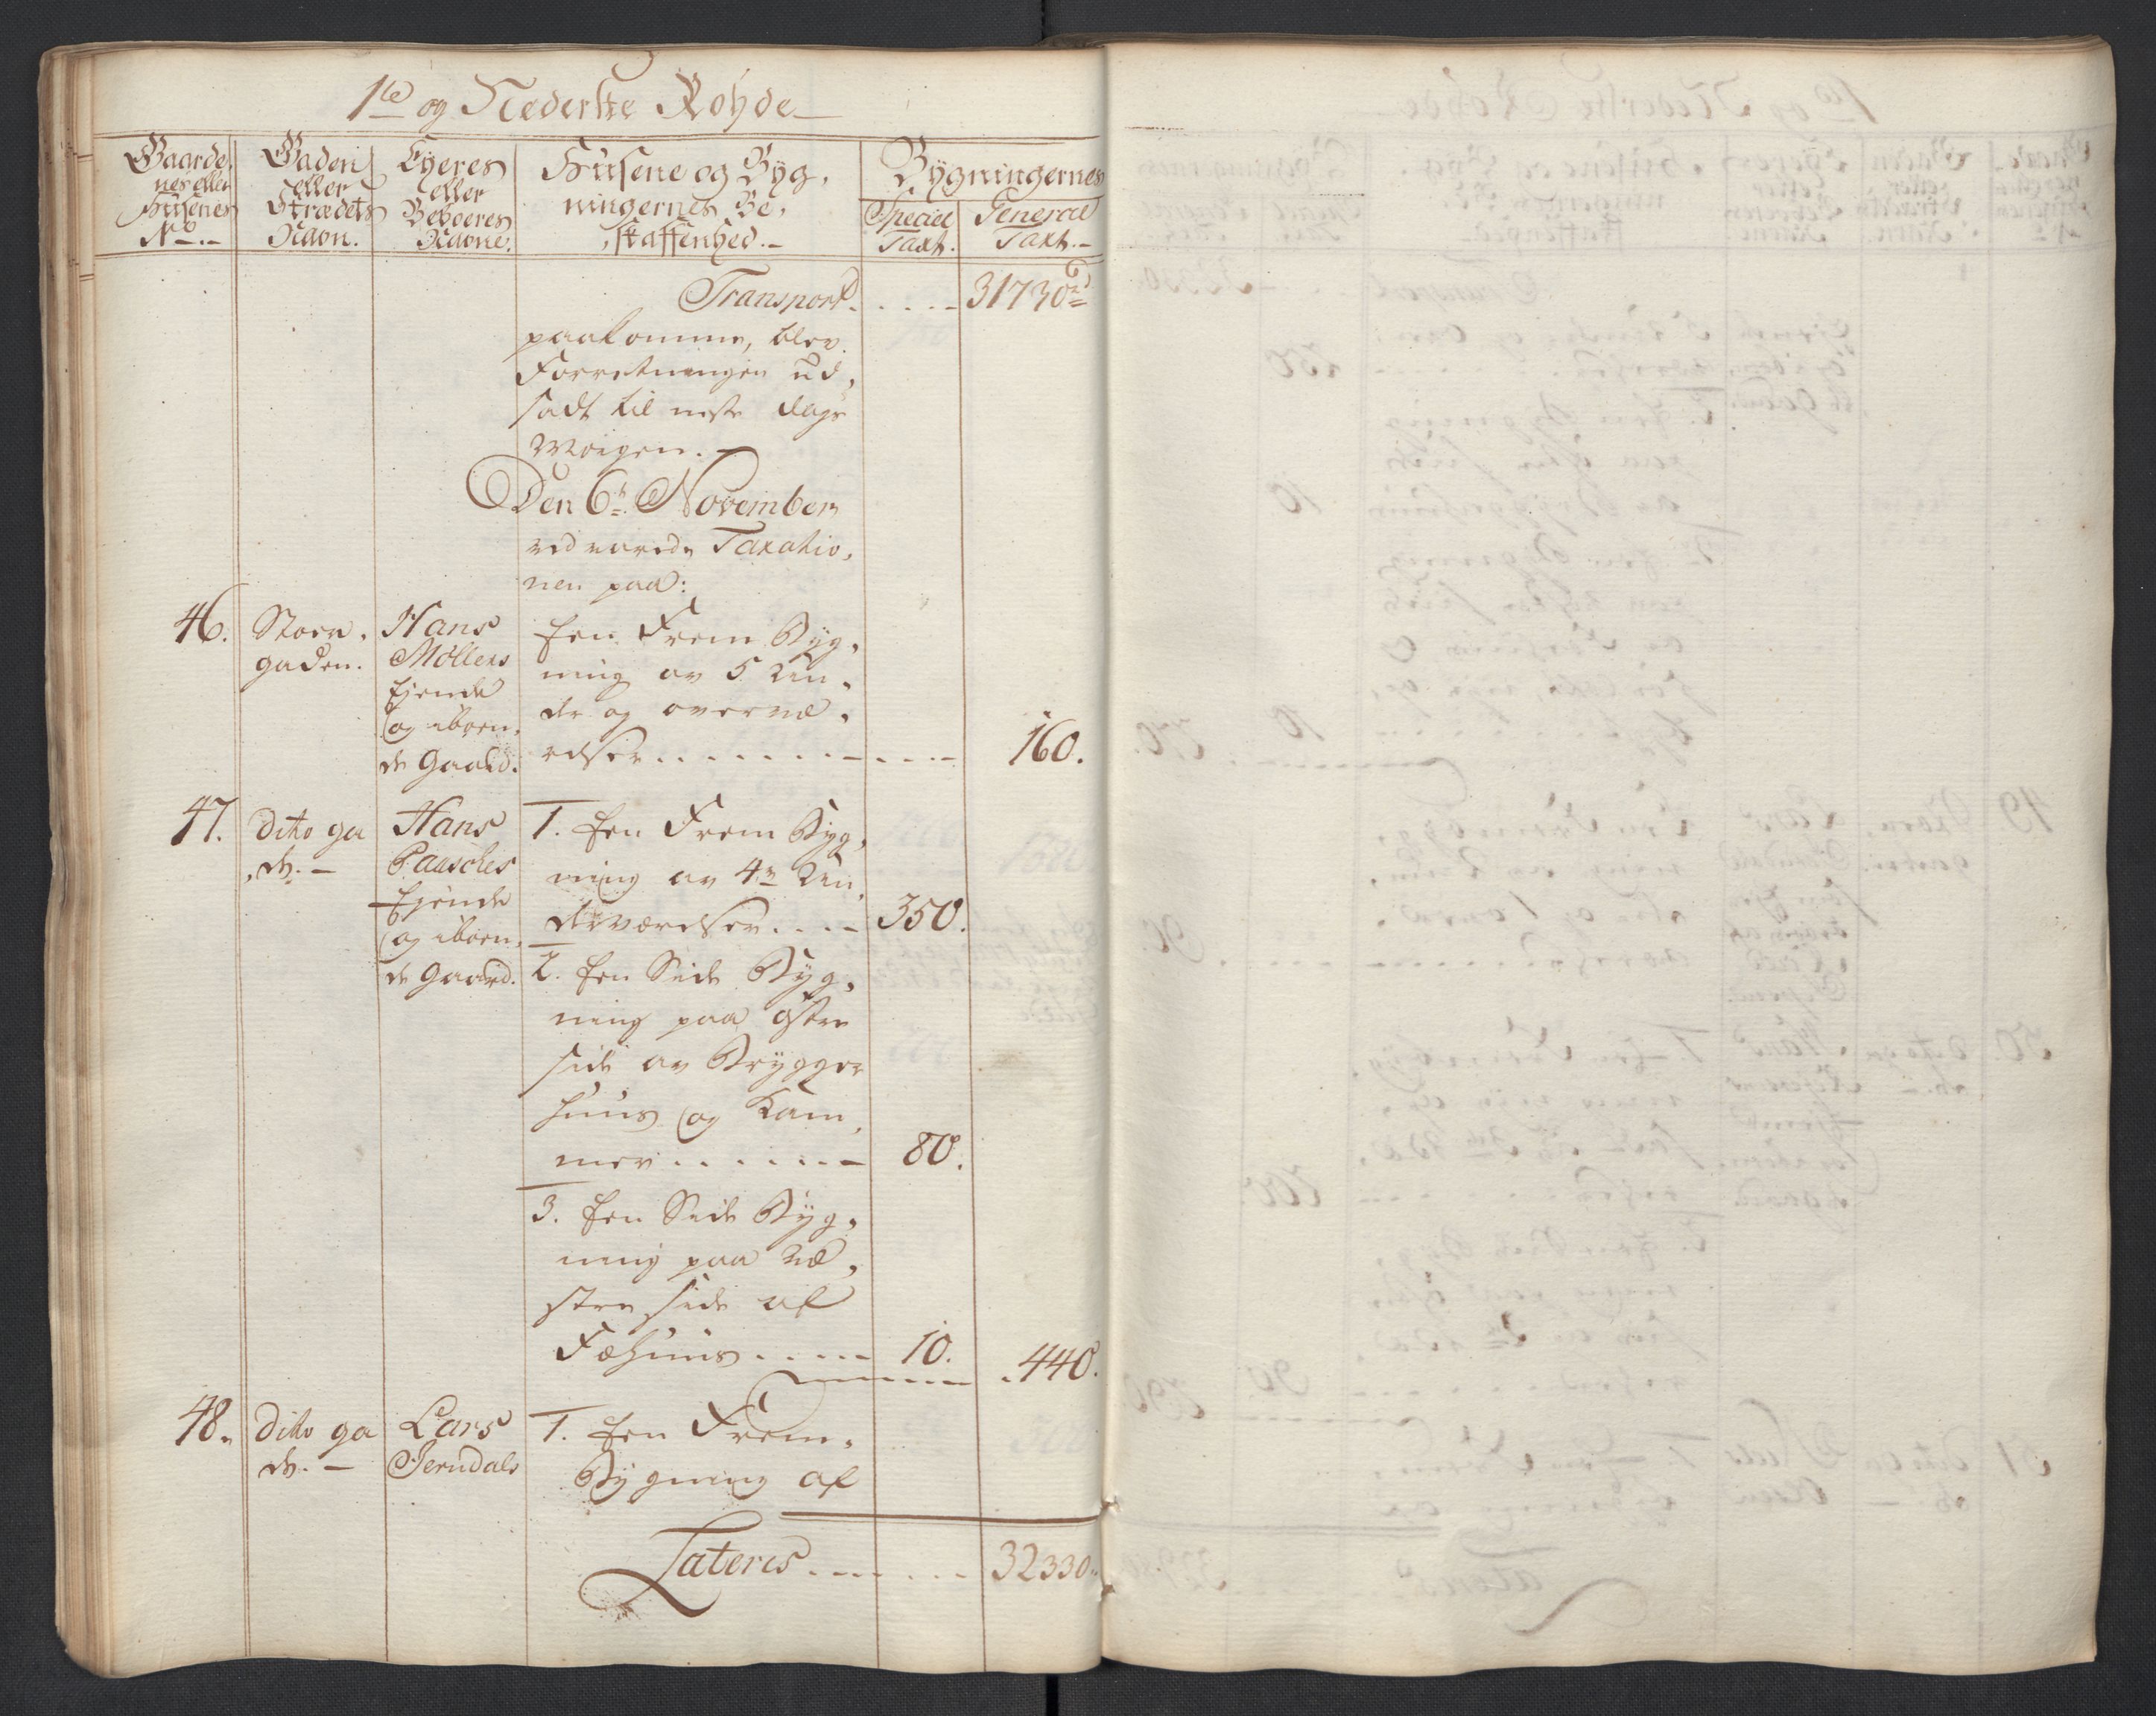 1te og Nederste Rohde
Gaarde,
nes eller
Husenes
No.
Gaden
eller
Strædets
Navn.
Eyeres
eller
Beboeres
Navne.
Husene og Byg,
ningernes Be,
skaffenhed.
Bygningernes
Special
Taxt.
General
Taxt.
Transport. 31730rd
paakomme, blev
Forretningen ud,
sadt til neste dags
Morgen.
Den 6te November
vedvarede Taxatio,
nen paa:
46.
Stoer,
gaden.
Hans
Møllers
Ejende
og iboen,
de Gaard.
Een Frem Byg,
ning av 5 Un,
dr og overvæ,
relser 160.
47.
Dito ga
de.
Hans
Paasches
Ejende
og iboen,
de Gaard.
1. Een Frem Byg,
ning av 4re Un,
derværelser 350.
2. Een Side Byg,
ning paa østre
side av Brygger
huus og Kam,
mer 80.
3. Een Side Byg,
ning paa væ,
stre side af
Fæhuus 10. 440.
48.
Dito ga
de.
Lars
Jerndals
1. Een Frem,
Bygning af
Lateris 32330.